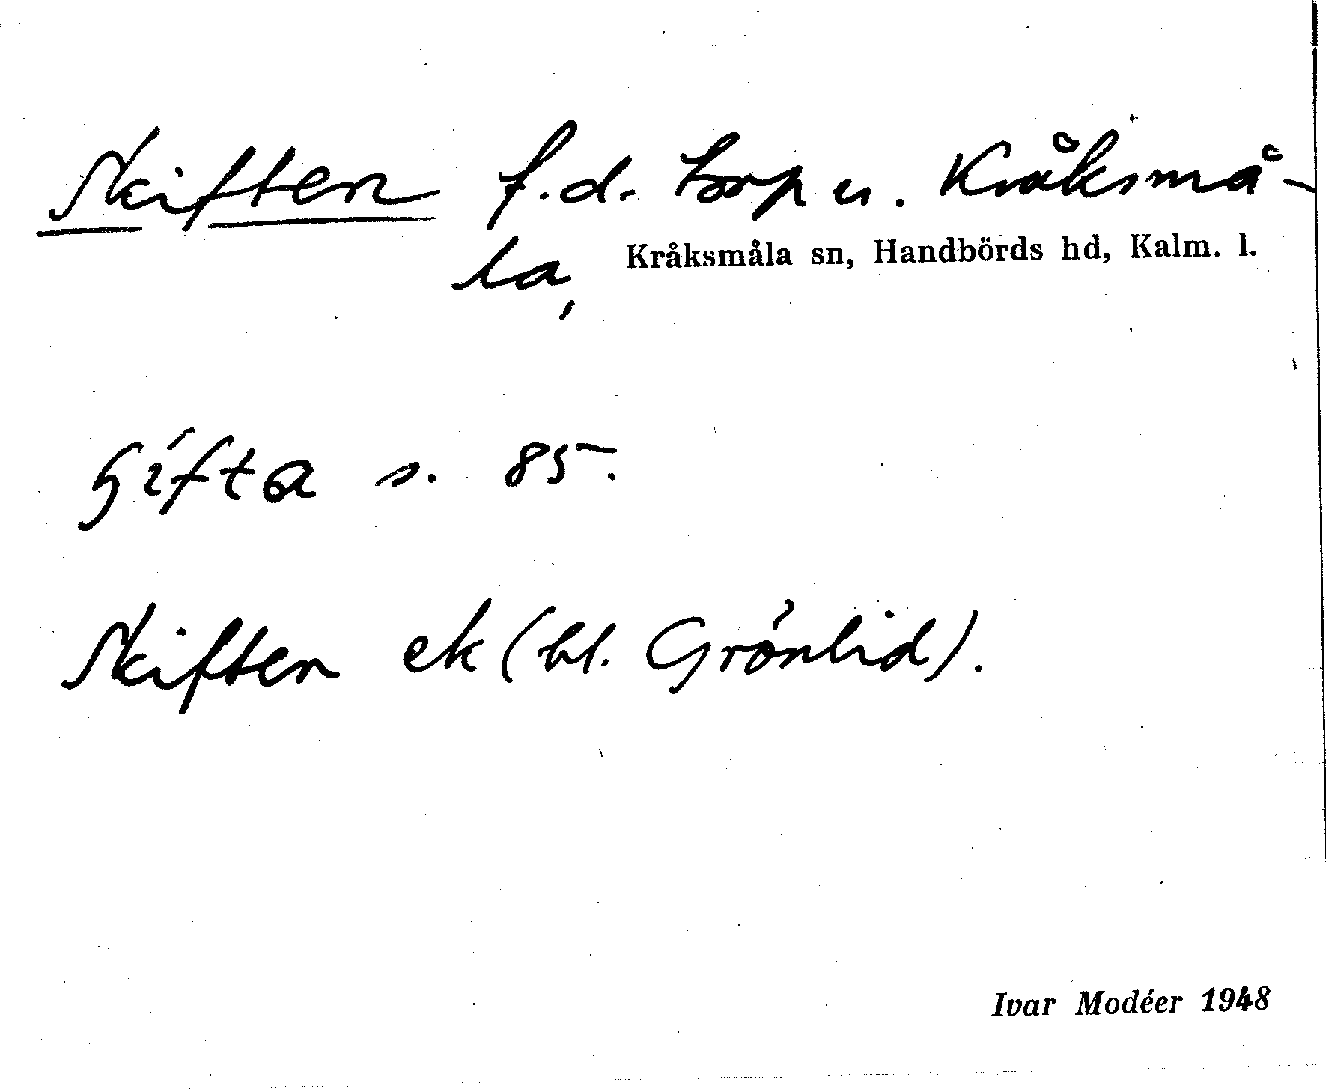 Skiften f.d. torp u. Kråksmå-
la, Kråksmåla sn, Handbörds hd, Kalm. l.
Gifta s. 85.
Skiften ek (bl. Grönlid).
Ivar Modéer 1948